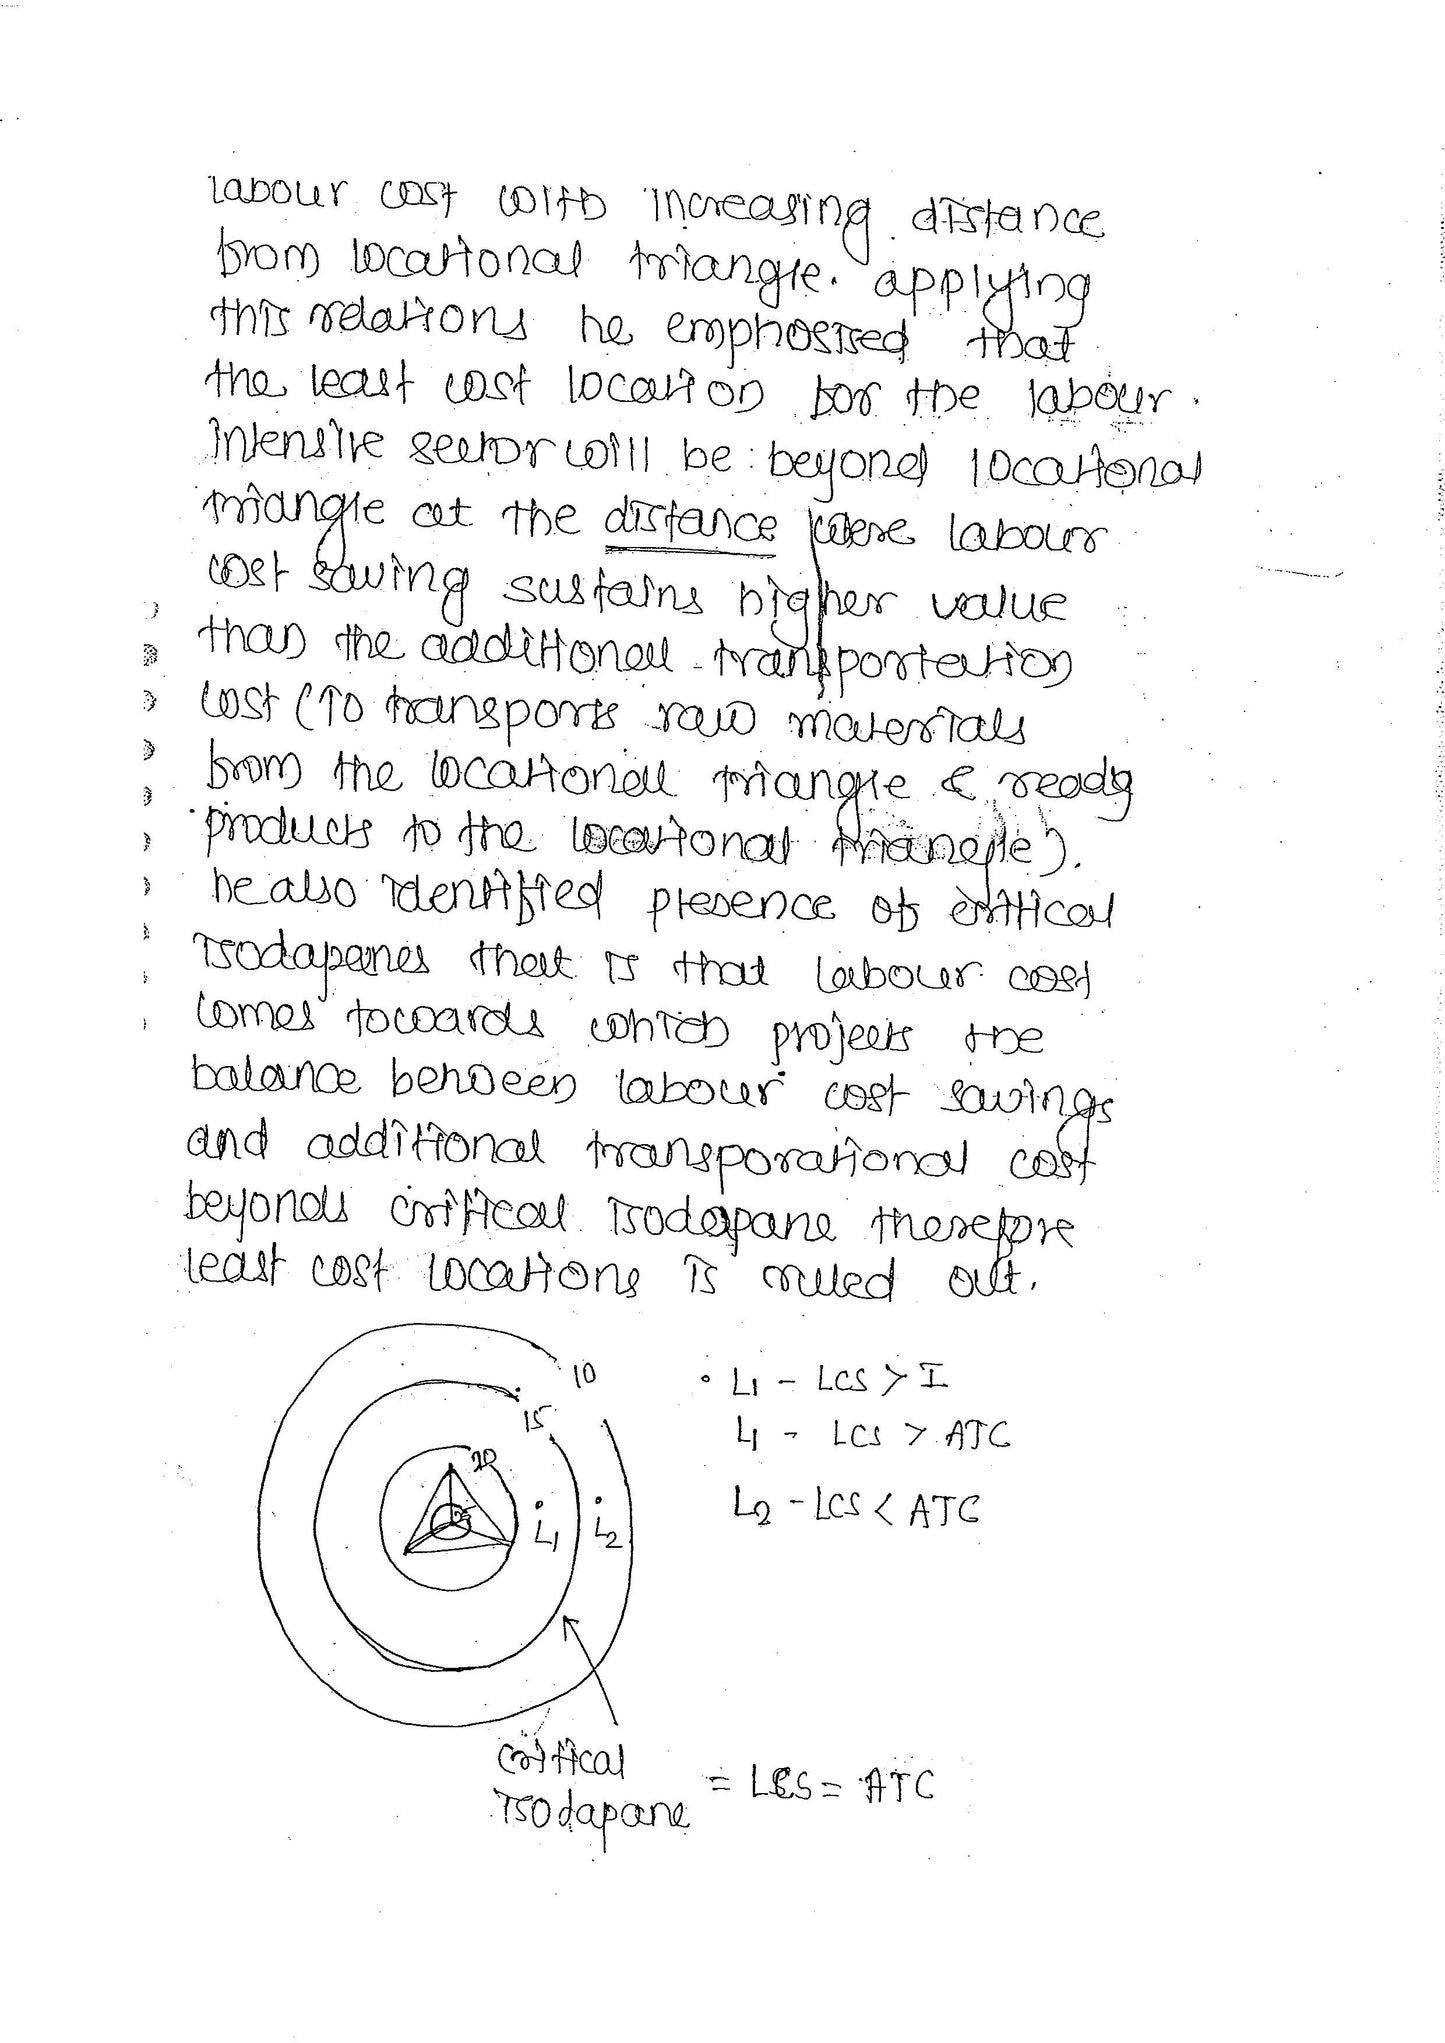 labour cost with increasing distance
from locational triangle. applying
this relations he emphosised that
the least cost location for the labour
intensive sector will be beyond locational
triangle at the distance where labour
cost saving sustains higher value
than the additional transportation
cost (To transports raw materials
from the locational triangle & ready
products to the locational triangle).
he also identified presence of critical
Isodapanes that is that labour cost
comes towards which projects the
balance between labour cost savings
and additional transporational cost
beyonds critical Isodapane therefore
least cost locations is ruled out.
10
15
20
L1
L2
L1 - LCS > I
L1 - LCS > ATC
L2 - LCS < ATC
critical
Isodapane = LCS = ATC